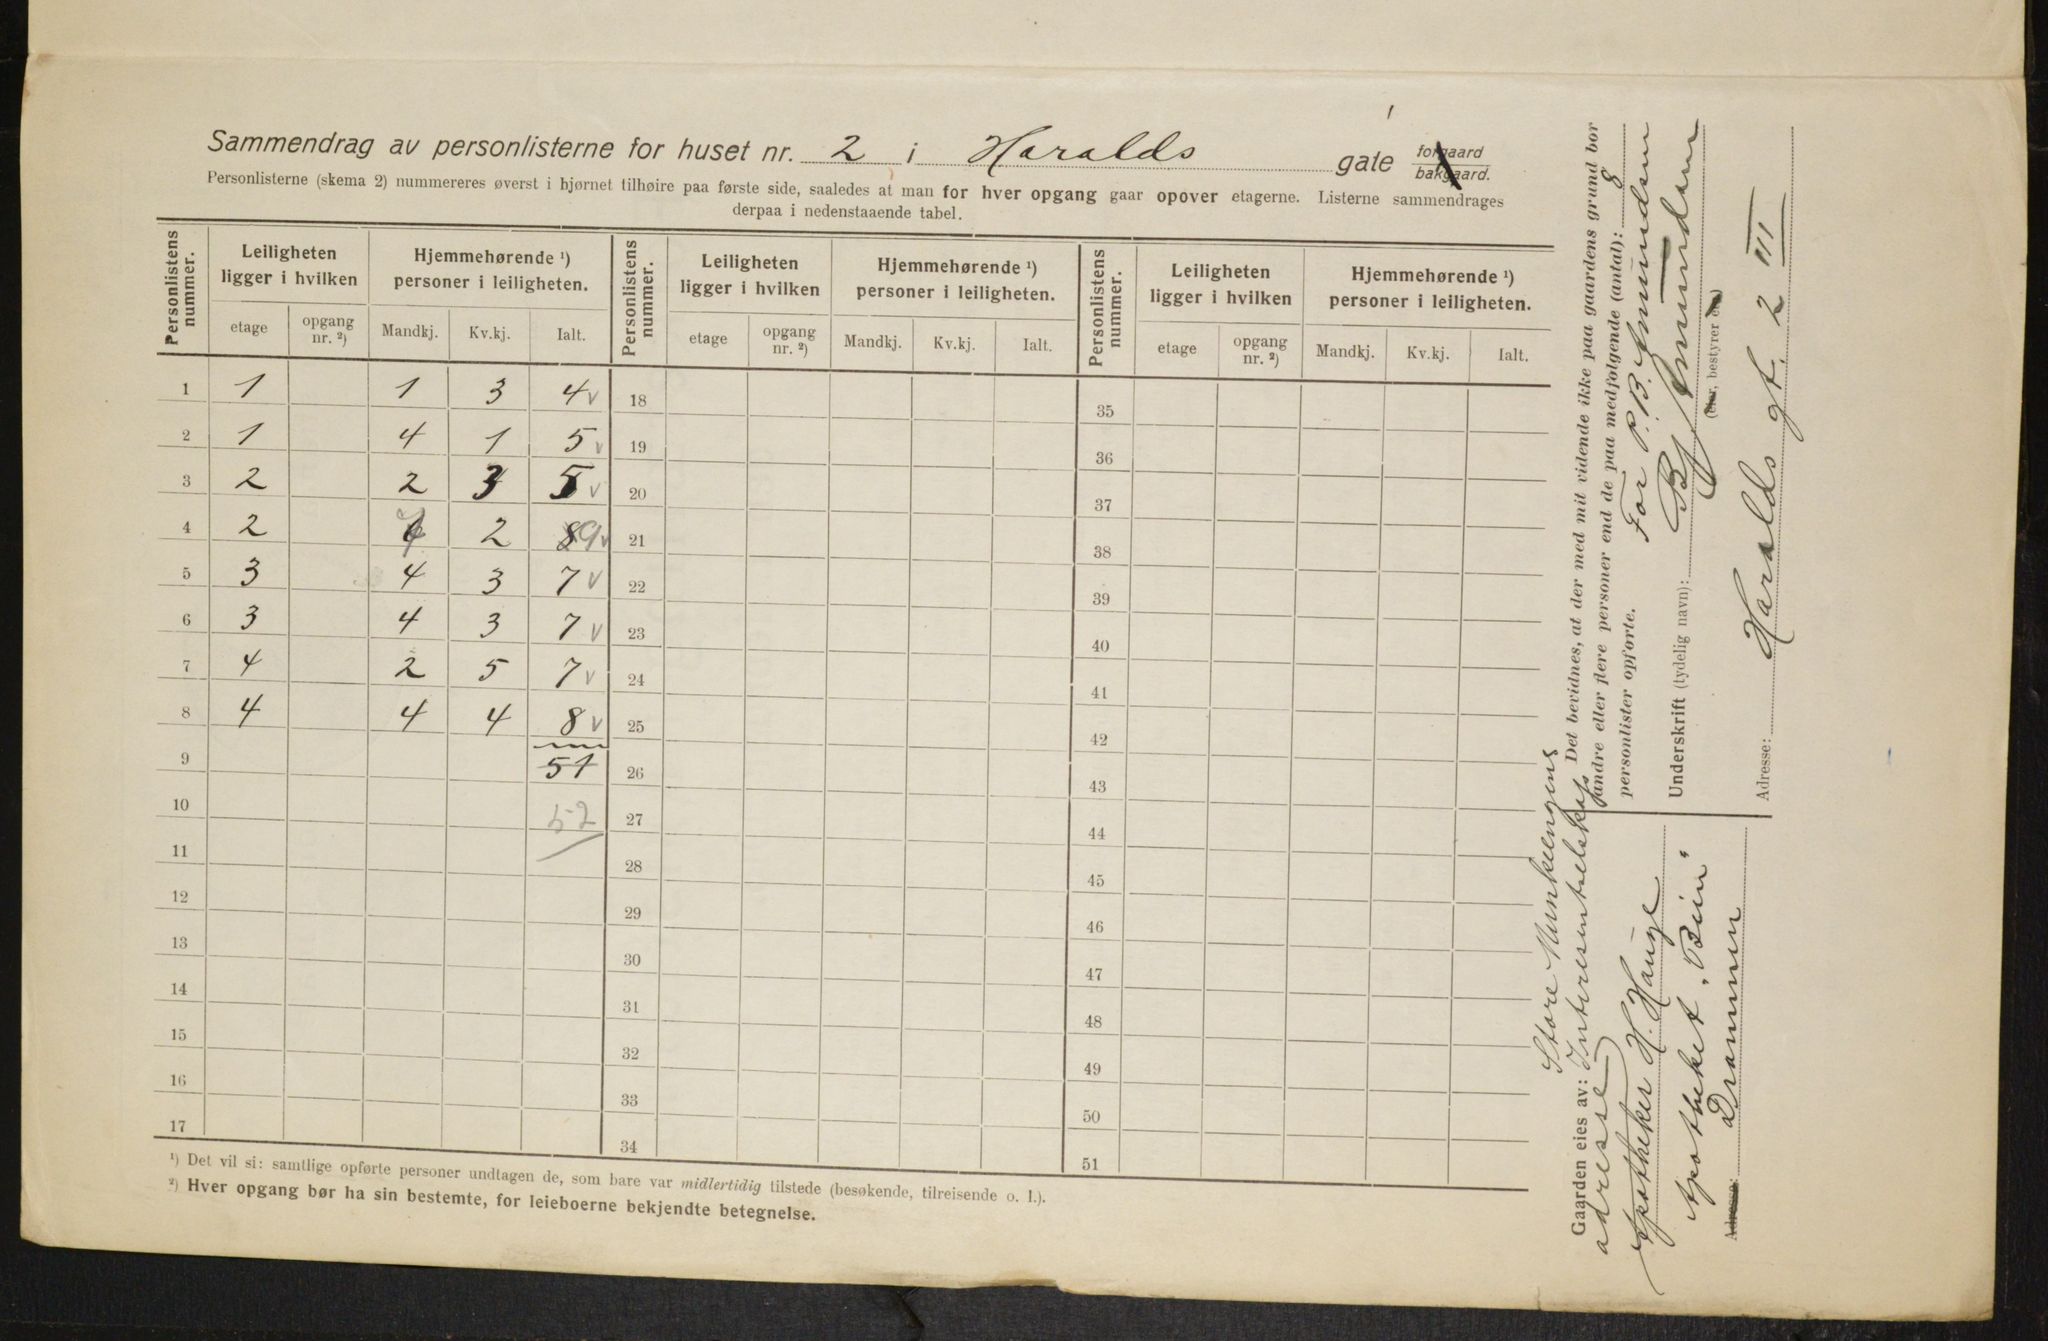 Sammendrag av personlisterne for huset nr. 2 i Haralds gate forgaard bakgaard.
Personlisterne (skema 2) nummereres øverst i hjørnet tilhøire paa første side, saaledes at man for hver opgang gaar opover etagerne. Listerne sammendrages
derpaa i nedenstaaende tabel.
Personlistens nummer. Leiligheten ligger i hvilken Hjemmehørende ¹) personer i leiligheten. Personlistens nummer. Leiligheten ligger i hvilken Hjemmehørende ¹) personer i leiligheten. Personlistens nummer. Leiligheten ligger i hvilken Hjemmehørende ¹) personer i leiligheten.
etage opgang nr. ²) Mandkj. Kv.kj. Ialt. etage opgang nr. ²) Mandkj. Kv.kj. Ialt. etage opgang nr. ²) Mandkj. Kv.kj. Ialt.
1 1 1 3 4 v 18 35
2 1 4 1 5 v 19 36
3 2 2 3 5 v 20 37
4 2 7 2 8 9 v 21 38
5 3 4 3 7 v 22 39
6 3 4 3 7 v 23 40
7 4 2 5 7 v 24 41
8 4 4 4 8 v 25 42
9 51 26 43
10 52 27 44
11 28 45
12 29 46
13 30 47
14 31 48
15 32 49
16 33 50
17 34 51
¹) Det vil si: samtlige opførte personer undtagen de, som bare var midlertidig tilstede (besøkende, tilreisende o. l.).
²) Hver opgang bør ha sin bestemte, for leieboerne bekjendte betegnelse.
Det bevidnes, at der med mit vidende ikke paa gaardens grund bor
andre eller flere personer end de paa medfølgende (antal): 8
personlister opførte. For P. B. Amundsen
Underskrift (tydelig navn): Amundsen
(eier, bestyrer etc.)
Adresse: Haralds gt. 2 III
Store Munkeengens
Gaarden eies av: Interesentselskap
adresse
Apotheker H. Hauge
Apotheket
Adresse: Drammen